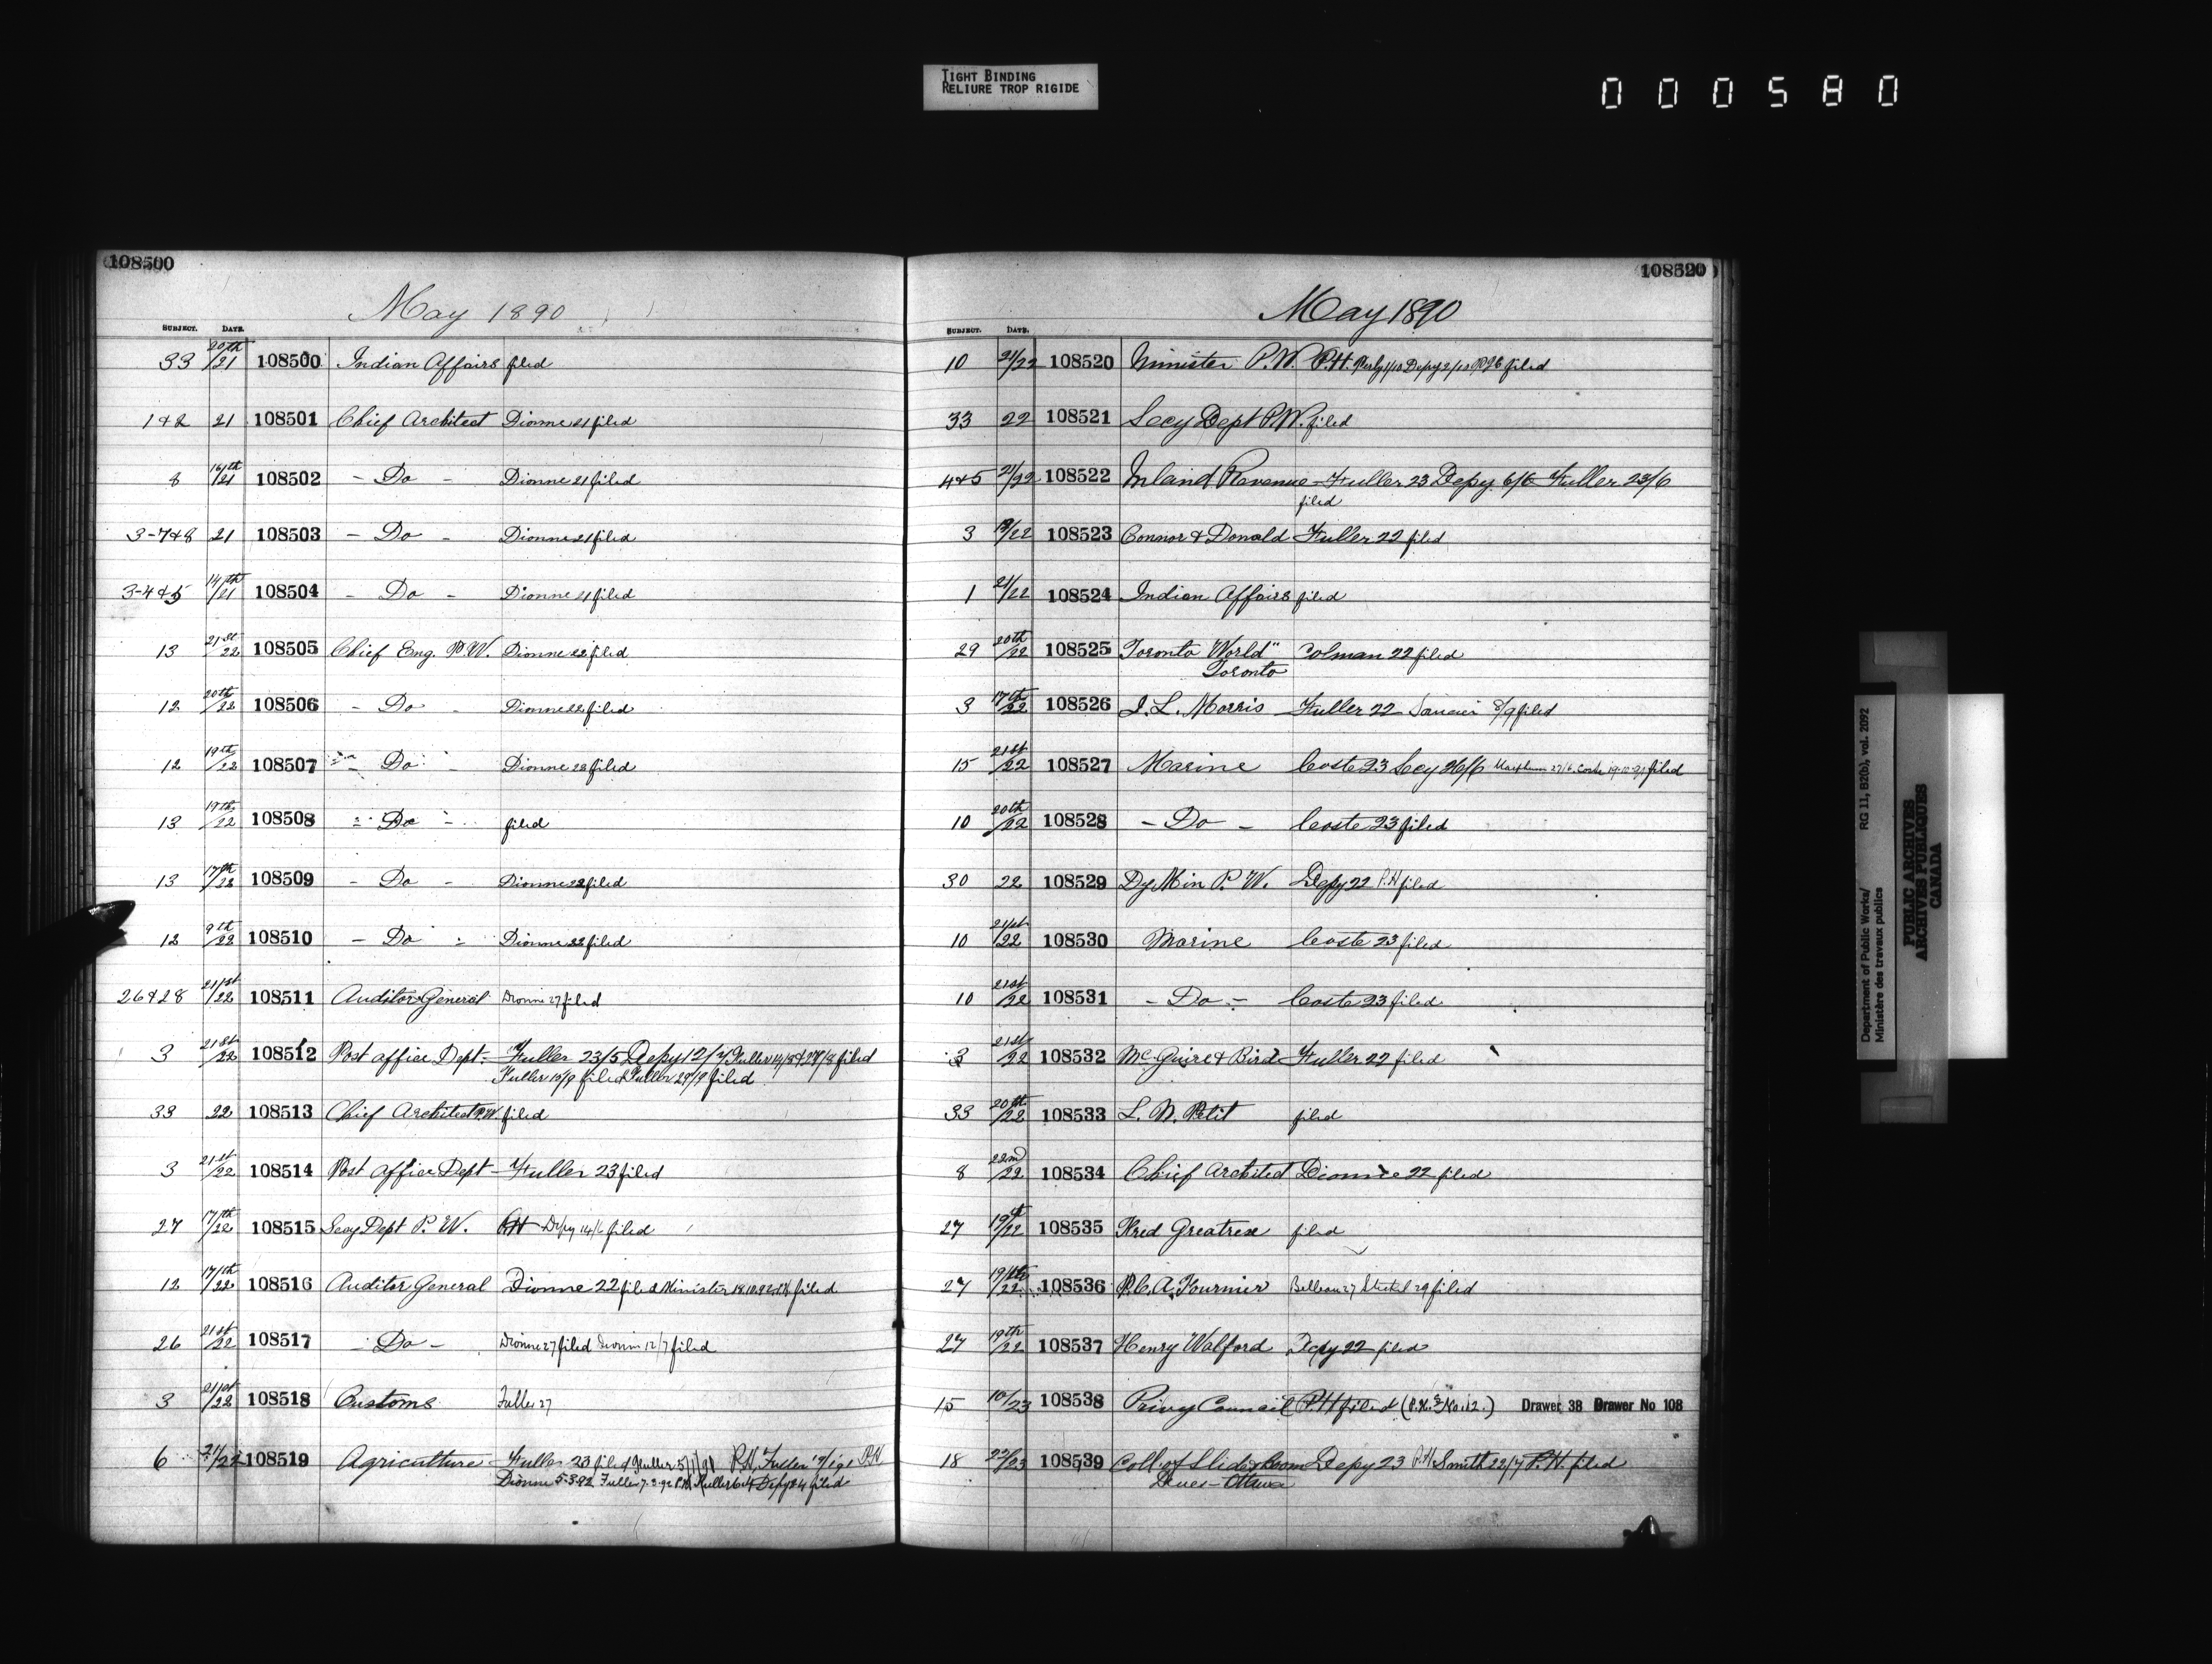 TIGHT BINDING
RELIURE TROP RIGIDE
000580
108500
May 1890
SUBJECT. DATE.
33 20th/21 108500 Indian Affairs filed
1&2 21 108501 Chief Architect Dionne 21 filed
8 16th/21 108502 - Do - Dionne 21 filed
3-7&8 21 108503 - Do - Dionne 21 filed
3-4&5 14th/21 108504 - Do - Dionne 21 filed
13 21st/22 108505 Chief Eng. P.W. Dionne 22 filed
12 20th/22 108506 - Do - Dionne 22 filed
12 19th/22 108507 - Do - Dionne 28 filed
13 19th/22 108508 - Do - filed
13 17th/22 108509 - Do - Dionne 22 filed
12 9th/22 108510 - Do - Dionne 22 filed
26&28 21st/22 108511 Auditor General Dionne 27 filed
3 21st/22 108512 Post office Dept. Fuller 23/5 Depy 12/7 Fuller 14/8 & 27/8 filed
Fuller 15/9 filed Fuller 29/9 filed
33 22 108513 Chief Architect P.W. filed
3 21st/22 108514 Post office Dept - Fuller 23 filed
27 17th/22 108515 Secy Dept P. W. Depy 14/6 filed
12 17th/22 108516 Auditor General Dionne 22 filed Minister 18.10.92 filed
26 21st/22 108517 - Do - Dionne 27 filed Dionne 12/7 filed
3 21st/22 108518 Customs Fuller 27
6 21/22 108519 Agriculture - Fuller 23 filed Fuller 5/1/91 P.H. Fuller P.H.
Dionne 5.3.92 Fuller 7.3.92 P.H. Fuller Depy filed
108520
May 1890
SUBJECT. DATE.
10 21/22 108520 Minister P.W. P.H. Perley 1/10 Depy 2/10 filed
33 22 108521 Secy Dept P.W. filed
4&5 21/22 108522 Inland Revenue - Fuller 23 Depy 6/6 Fuller 23/6
filed
3 19/22 108523 Connor & Donald Fuller 22 filed
1 21/22 108524 Indian Affairs filed
29 20th/22 108525 Toronto World" Colman 22 filed
Toronto
3 17th/22 108526 J. L. Morris Fuller 22 8/9 filed
15 21st/22 108527 Marine Coste 23 Secy 26/6 27/6 Coste filed
10 20th/22 108528 - Do - Coste 23 filed
30 22 108529 Dy Min P. W. Depy 22 P.H filed
10 21st/22 108530 Marine Coste 23 filed
10 21st/22 108531 - Do - Coste 23 filed
3 21st/22 108532 McGuire & Bird Fuller 22 filed
33 20th/22 108533 L. N. Petit filed
8 22nd/22 108534 Chief Architect Dionne 22 filed
27 19th/22 108535 Fred Greatrex filed
27 19th/22 108536 P. C. A. Fournier Belleau 27 Steckel 29 filed
27 19th/22 108537 Henry Walford Depy 22 filed
15 10/23 108538 Privy Council P.H filed (P.H.s No. 12.) Drawer 38 Drawer No 108
18 22/23 108539 Coll. of Slide & Boom Depy 23 P.H Smith 22/7 P.H. filed
Dues - Ottawa
Department of Public Works/ RG 11, B2(b), vol. 2092
Ministère des travaux publics
PUBLIC ARCHIVES
ARCHIVES PUBLIQUES
CANADA